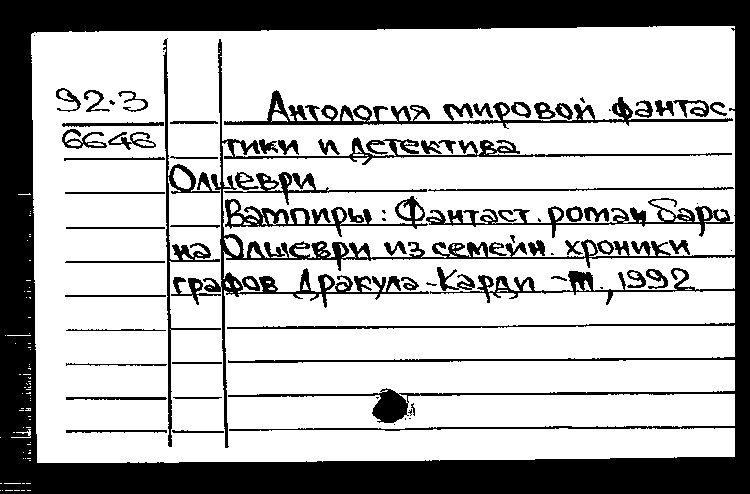 92.3
6646
Антология мировой фантас-
тики и детектива
Олшеври.
Вампиры: Фантаст. роман баро
на Олшеври из семейн. хроники
графов Дракула-Карди -м, 1992